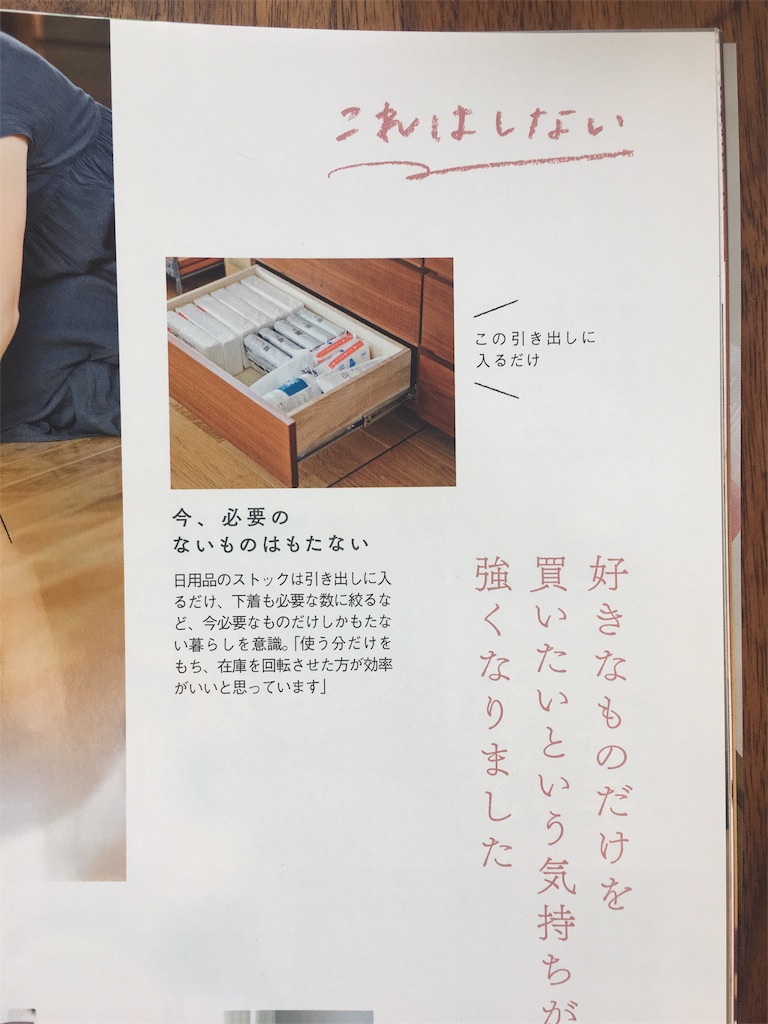 これはしない
この引き出しに
入るだけ
今、必要の
ないものはもたない
日用品のストックは引き出しに入
るだけ、下着も必要な数に絞るな
ど、今必要なものだけしかもたな
い暮らしを意識。「使う分だけを
もち、在庫を回転させた方が効率
がいいと思っています」
好きなものだけを
買いたいという気持ちが
強くなりました